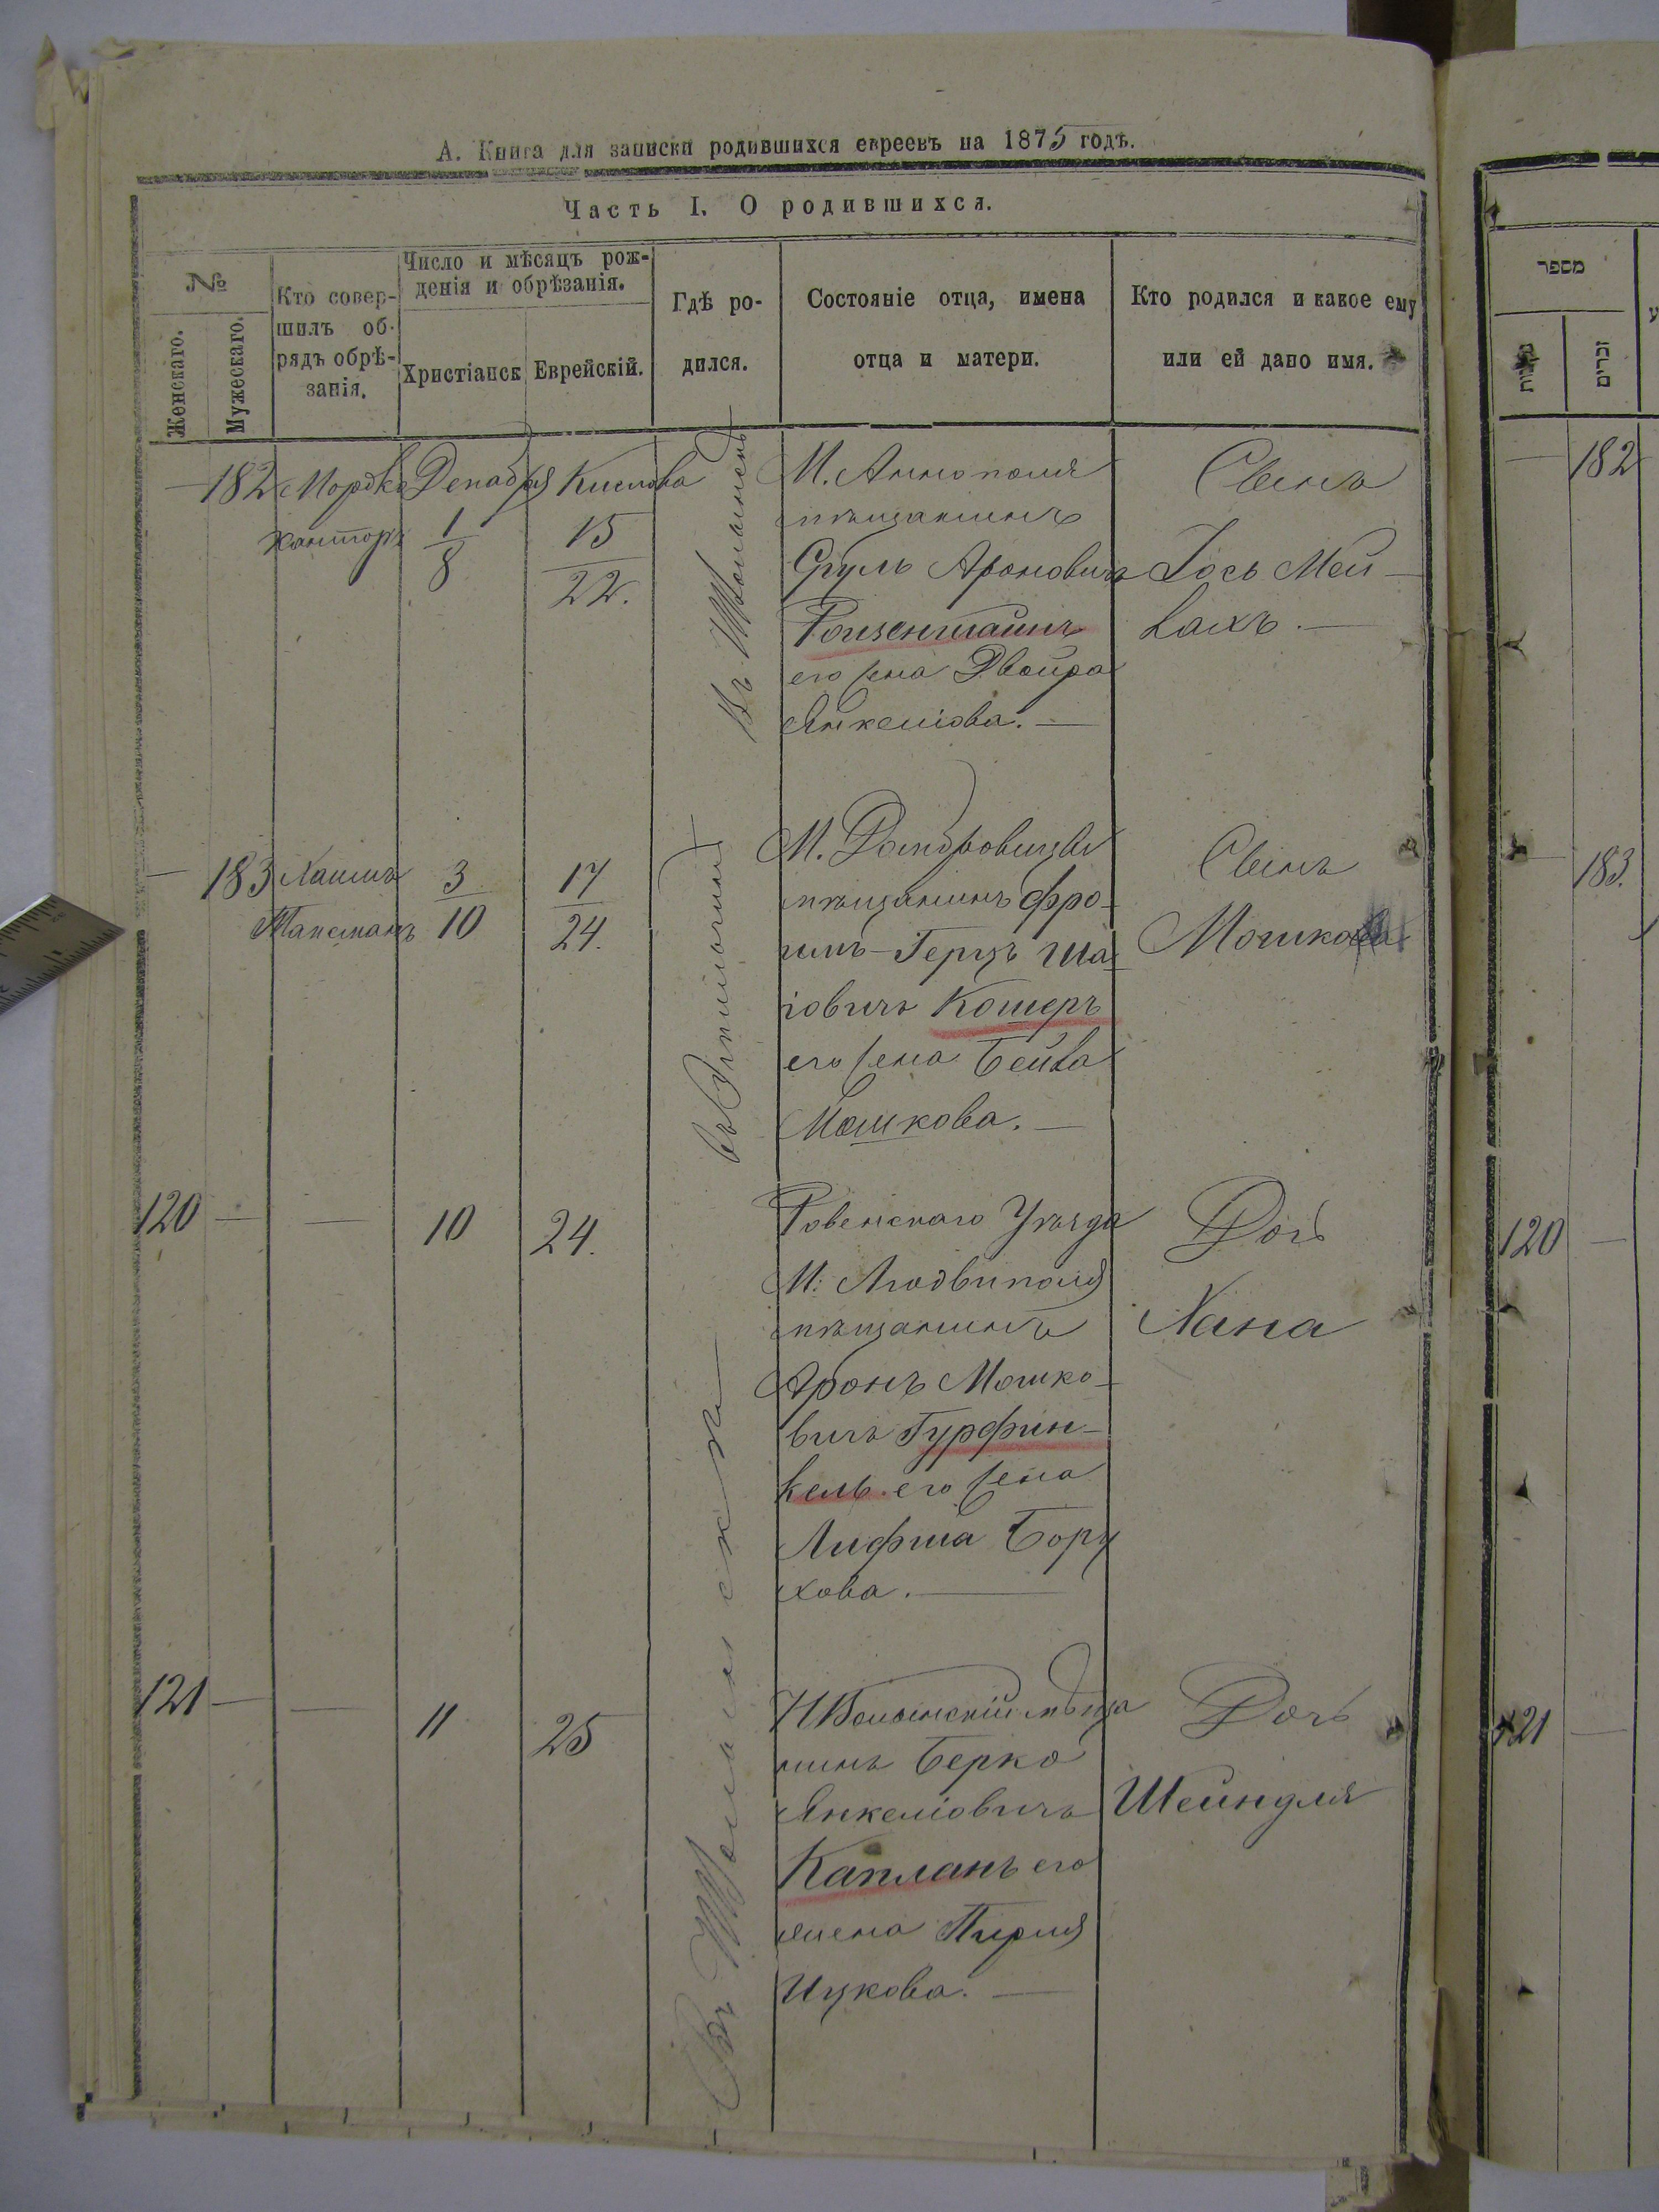 А. Книга для записки родившихся евреевъ на 1875 годъ.
Часть I. О родившихся.
№
Женскаго.
Мужескаго.
Кто совер-
шилъ об-
рядъ обрѣ-
занія.
Число и мѣсяцъ рож-
денія и обрѣзанія.
Христіанск
Еврейскій.
Гдѣ ро-
дился.
Состояніе отца, имена
отца и матери.
Кто родился и какое ему
или ей дано имя.
מספר
זכרים
— 182 Мордко Декабря Кислова
Канторъ 1/8 15/22.
Въ
М. Аннополя
мѣщанинъ
Сруль Ароновичъ
Ройзенштайнъ
его жена Двойра
Янкеліова. —
Сынъ
Іось Мей-
лахъ. —
182
— 183 Хаимъ 3 17
Таксманъ 10 24.
въ
М. Домбровицы
мѣщанинъ Фро-
имъ-Герцъ Ша-
іовичъ Кошеръ
его жена Бейла
Мошкова. —
Сынъ
Мошко
183.
120 — — 10 24.
Ровенскаго Уѣзда
М. Людвиполя
мѣщанинъ
Аронъ Мошко-
вичъ Гурфин-
кель его жена
Лифша Бору
хова. —
Дочь
Хана
120 —
121 — — 11 25
Въ
НВолынскій мѣща
нинъ Берко
Янкеліовичъ
Капланъ его
жена Пирля
Ицкова. —
Дочь
Шейндля
121 —